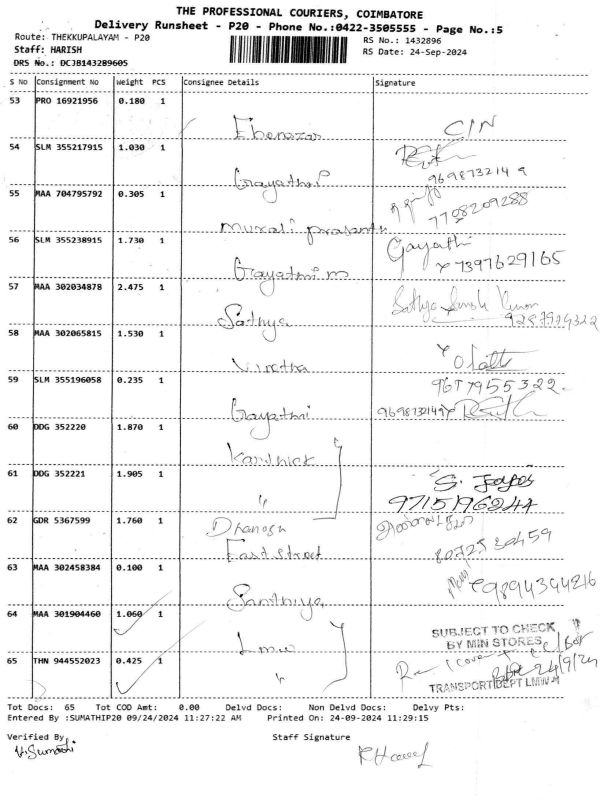 THE PROFESSIONAL COURIERS, COIMBATORE
Delivery Runsheet - P20 - Phone No.:0422-3505555 - Page No.:5
Route: THEKKUPALAYAM - P20
RS No.: 1432896
Staff: HARISH
RS Date: 24-Sep-2024
DRS No.: DCJB1432B9605
S No Consignment No Weight PCS Consignee Details Signature
53 PRO 16921956 0.180 1
Ebenezar CIN
54 SLM 355217915 1.030 1
Gayathri 9698732149
55 MAA 704795792 0.305 1
Murali prasanth 7708209288
56 SLM 355238915 1.730 1 Gayathi
Gayathri m 7397629165
57 MAA 302034878 2.475 1
Sathya
58 MAA 302065815 1.530 1
59 SLM 355196058 0.235 1 9677955322
Gayathri 9698732149
60 DDG 352220 1.870 1
Karthick
61 DDG 352221 1.905 1
" 9715196244
62 GDR 5367599 1.760 1
East Street 8072530459
63 MAA 302458384 0.100 1
Santhiya 9894394216
64 MAA 301904460 1.060 1
Lmw
SUBJECT TO CHECK
BY MIN STORES
65 THN 944552023 0.425 1
" 24/9/24
TRANSPORT DEPT LMW
Tot Docs: 65 Tot COD Amt: 0.00 Delvd Docs: Non Delvd Docs: Delvy Pts:
Entered By :SUMATHIP20 09/24/2024 11:27:22 AM Printed On: 24-09-2024 11:29:15
Verified By Staff Signature
V.Sumathi